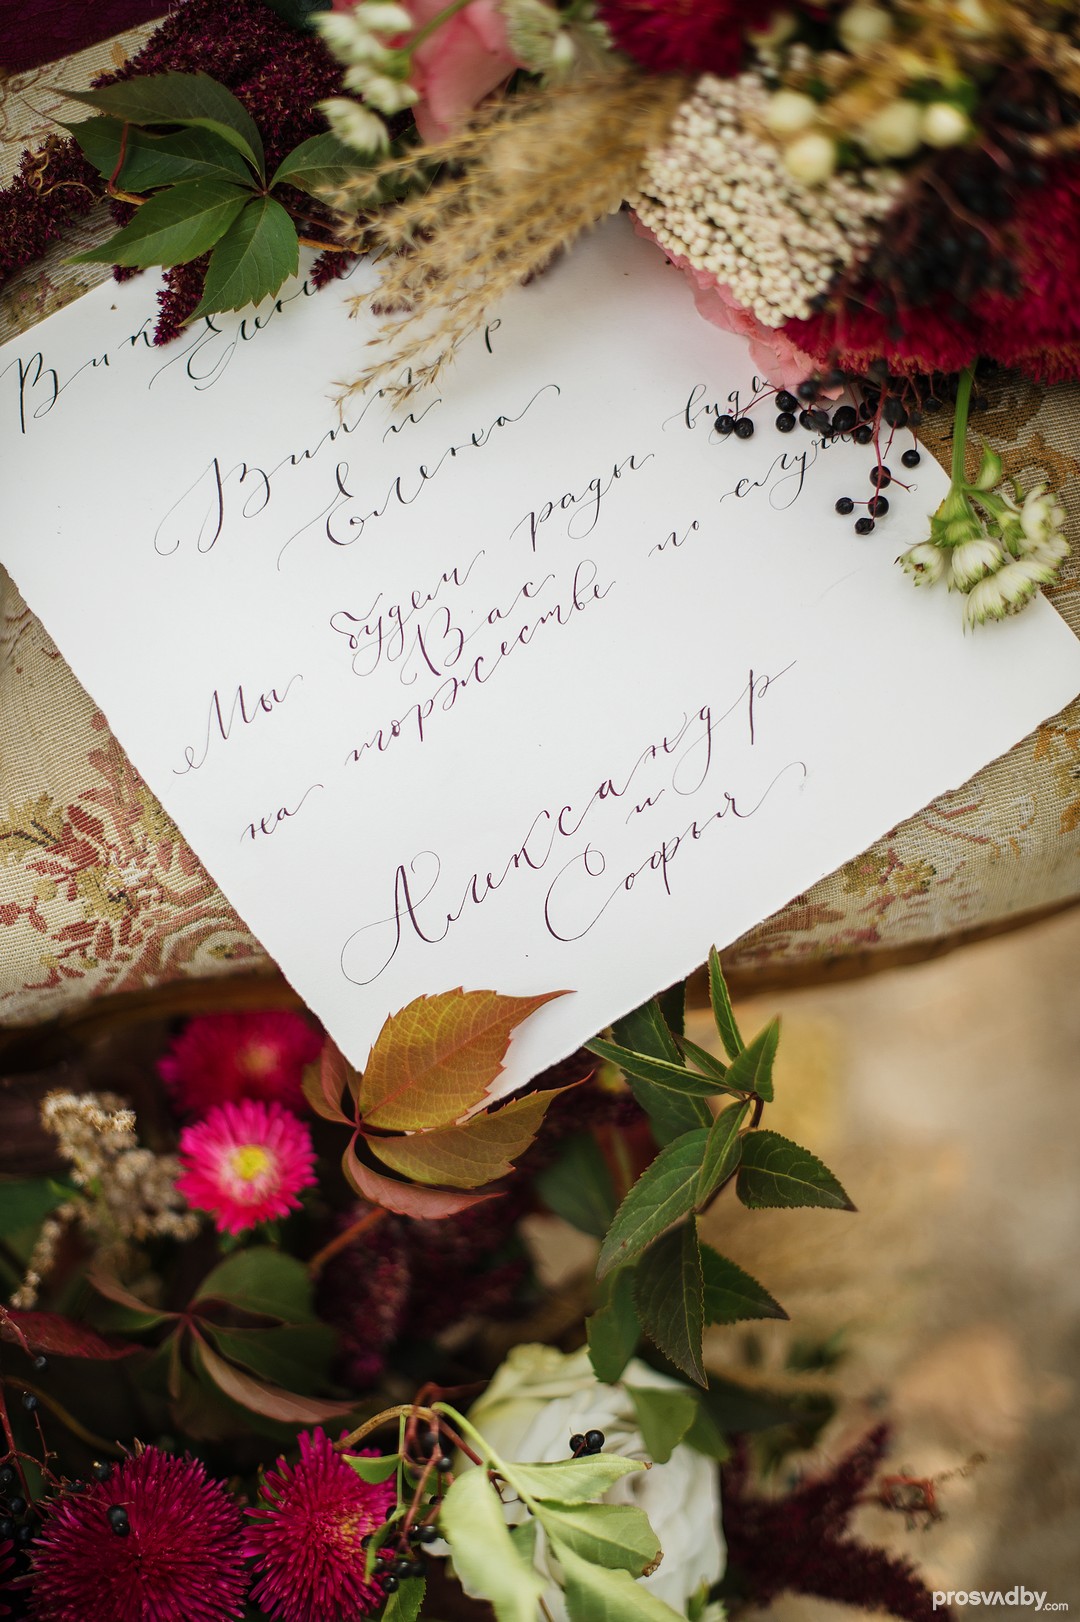 Вик
и
Елена
Мы будем рады виде
Вас
на торжестве по случа
Александр
и
Софья
prosvadby.com